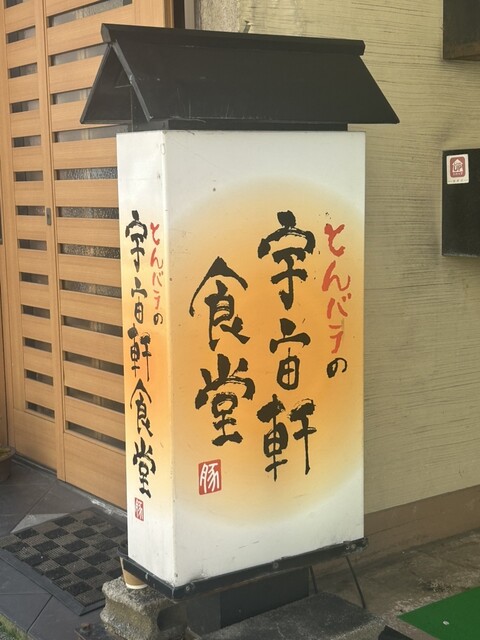 とんバテの
宇宙軒
食堂
豚
とんバテの
宇宙軒食堂
豚